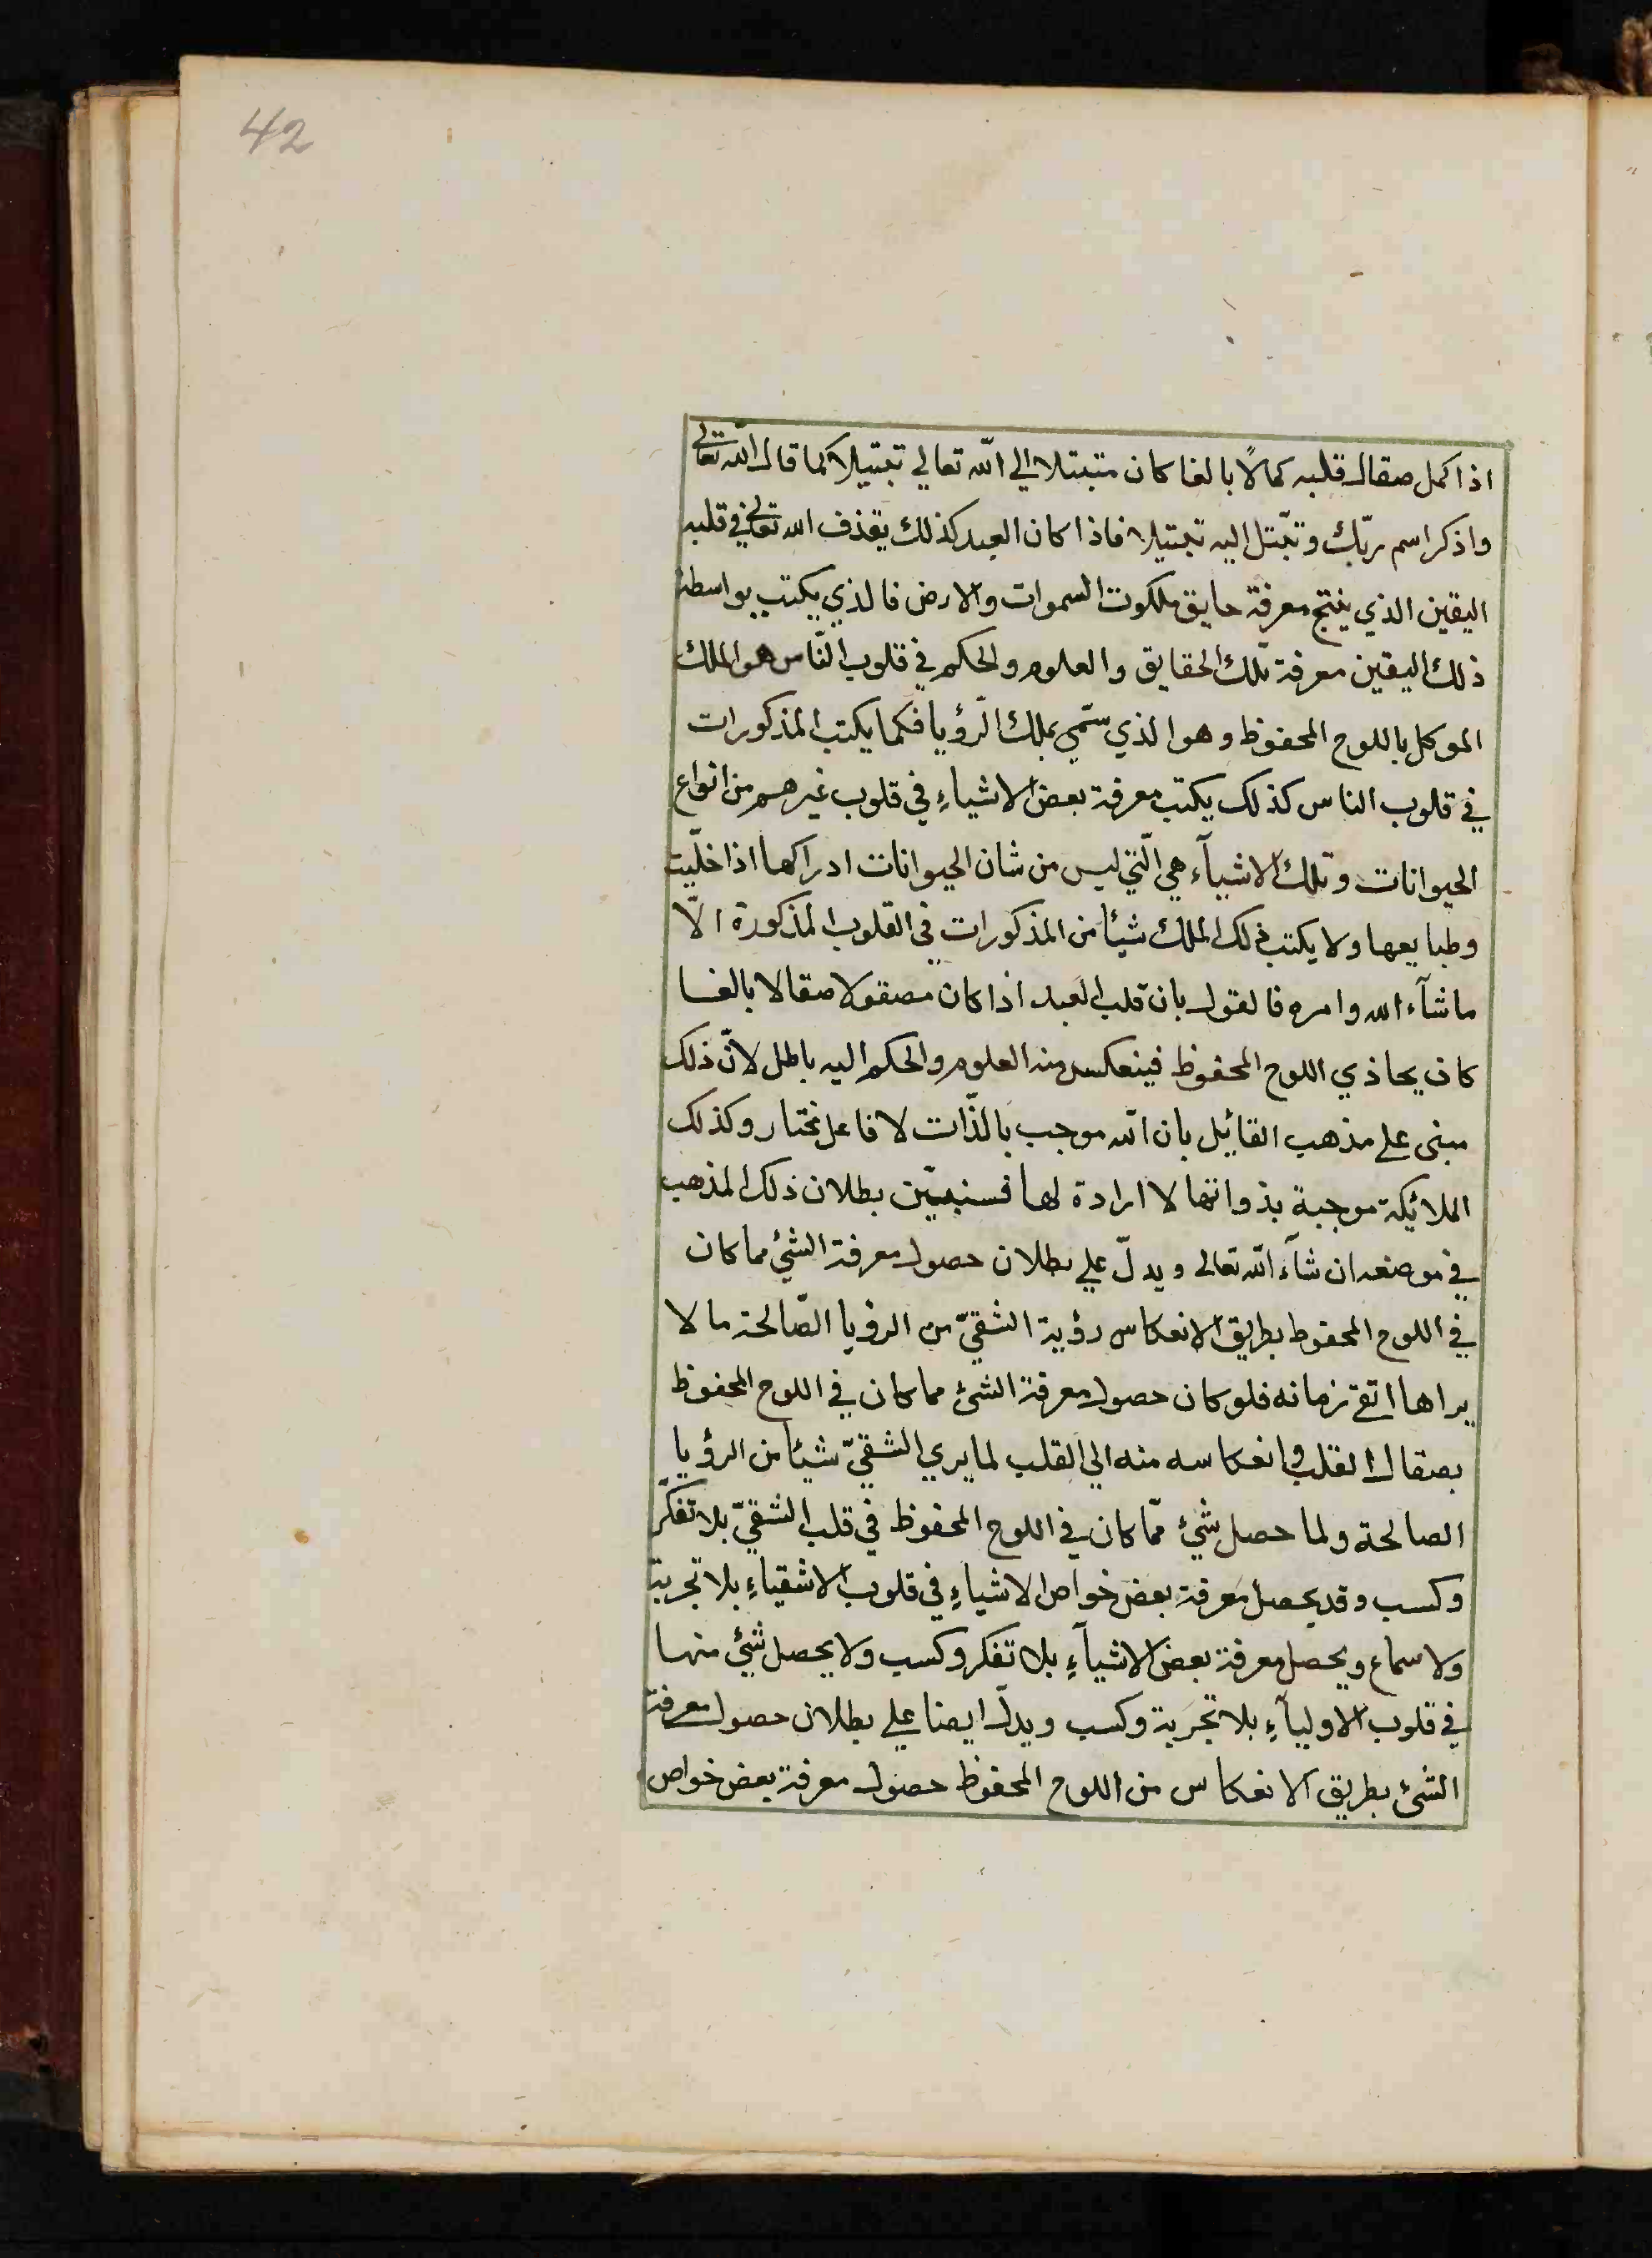 42
اذا كمل صقال قلبه كمالًا بالغا كان متبتلا الي الله تعالي تبتيلا كما قال الله تعالى
واذكر اسم ربّك وتبّتل اليه تبتيلا فاذا كان العبد كذلك يقذف الله تعالى في قلبه
اليقين الذي ينتج معرفة حايق ملكوت السموات والارض فالذي يكتب بواسطة
ذلك اليقين معرفة تلك الحقايق والعلوم والحكم في قلوب النّاس هو الملك
الموكل باللوح المحفوظ وهو الذي سمّي بملك الرّؤيا فكما يكتب المذكورات
في قلوب الناس كذلك يكتب معرفة بعض الاشياءِ في قلوب غيرهم من انواع
الحيوانات وتلك الاشيآء هي الّتي ليس من شان الحيوانات ادراكها اذا خلّيت
وطبايعها ولا يكتب ذلك الملك شيأ من المذكورات في القلوب المذكورة الّا
ما شآء الله وامره فالقول بان قلب العبد اذا كان مصقولا صقالا بالغا
كان يحاذي اللوح المحفوظ فينعكس منه العلوم والحكم اليه باطل لانّ ذلك
مبنى على مذهب القائيل بان الله موجب بالذّات لا فاعل مختار وكذلك
الملائيكة موجبة بذواتها لا ارادة لها فسنبيّن بطلان ذلك المذهب
في موضعه ان شآء الله تعالى ويدلّ علي بطلان حصول معرفة الشئ مما كان
في اللوح المحفوظ بطريق الانعكاس رؤية الشقيّ من الرؤيا الصّالحة ما لا
يراها اتقي زمانه فلو كان حصول معرفة الشئ مما كان في اللوح المحفوظ
بصقال القلب وانعكاسه منه الي القلب لما يري الشقيّ شيئا من الرؤيا
الصالحة ولما حصل شئ ممّا كان في اللوح المحفوظ في قلب الشقيّ بلا تفكّر
وكسب وقد يحصل معرفة بعض خواص الاشياءِ في قلوب الاشقياءِ بلا تجربة
ولا سماع ويحصل معرفة بعض الاشيآءِ بلا تفكر وكسب ولا يحصل شئ منها
في قلوب الاوليآءِ بلا تجربة وكسب ويدلّ ايضا علي بطلان حصول معرفة
الشئ بطريق الانعكاس من اللوح المحفوظ حصول معرفة بعض خواص